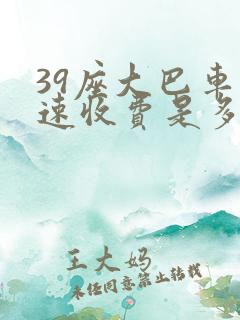 39座大巴车
速收费是多
王大妈
未经同意禁止转载